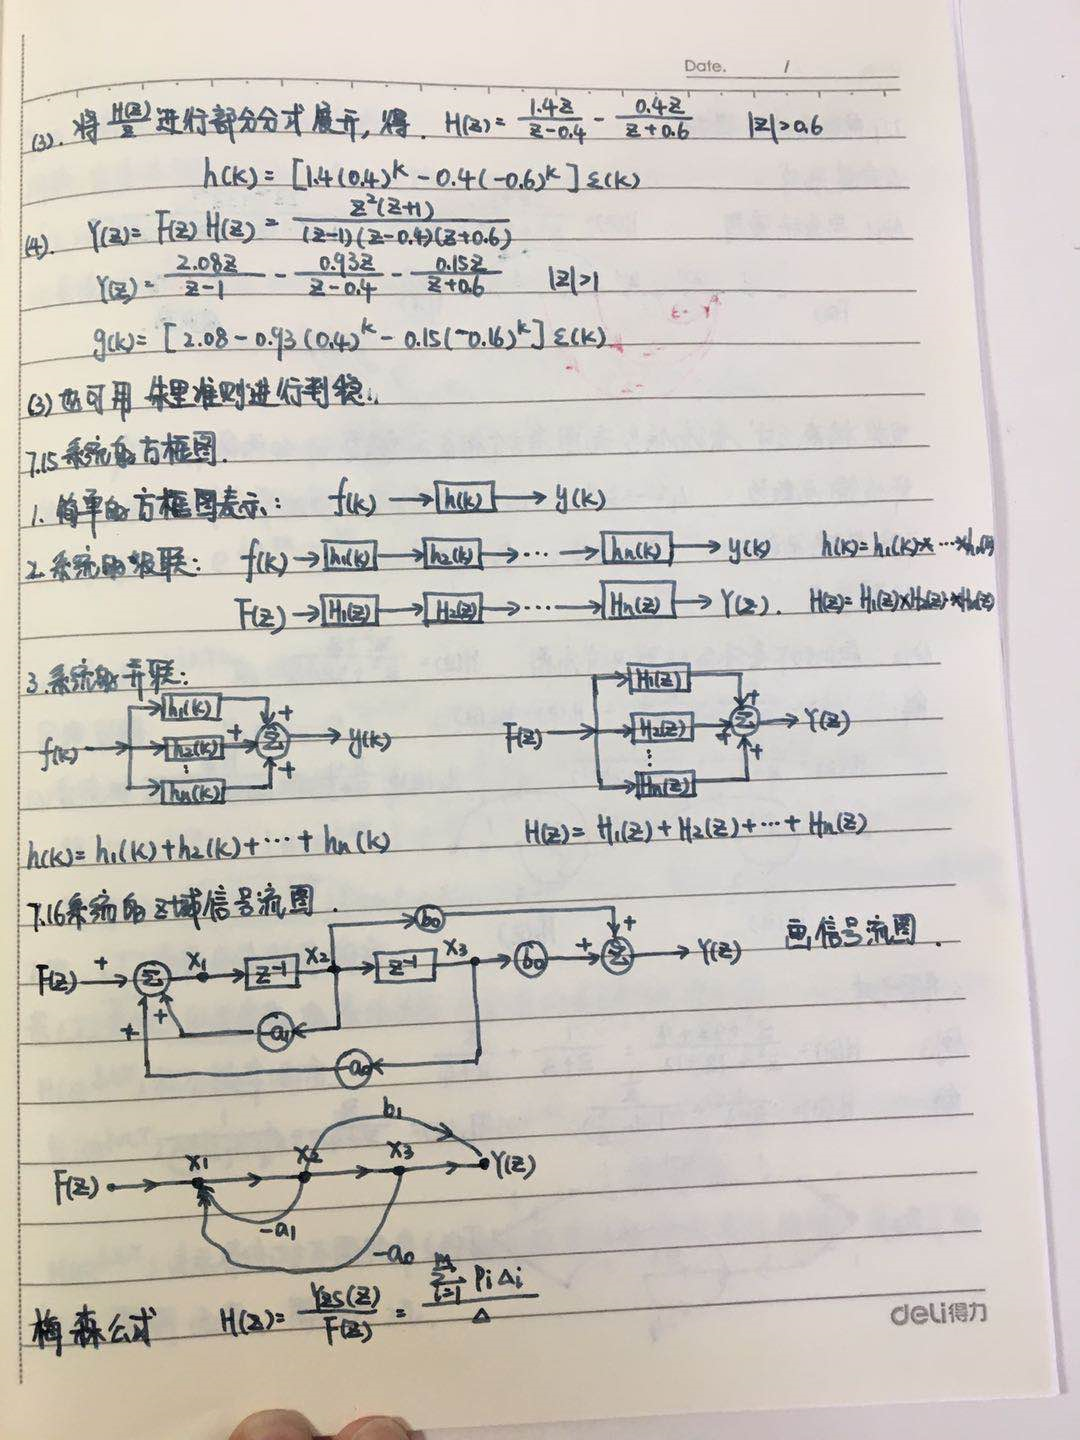 Date. /
(3). 将 H(z)/z 进行部分分式展开, 得. H(z)= 1.4z/(z-0.4) - 0.4z/(z+0.6) |z|>0.6
h(k)= [1.4(0.4)^k - 0.4(-0.6)^k] ε(k)
(4). Y(z)= F(z) H(z)= z²(z+1)/((z-1)(z-0.4)(z+0.6))
Y(z)= 2.08z/(z-1) - 0.93z/(z-0.4) - 0.15z/(z+0.6) |z|>1
g(k)= [2.08-0.93(0.4)^k - 0.15(-0.16)^k] ε(k)
(3) 也可用 朱里准则进行判稳.
7.15 系统的方框图.
1. 简单的方框图表示: f(k) → h(k) → y(k)
2. 系统的级联: f(k) → h₁(k) → h₂(k) → ⋯ → hn(k) → y(k) h(k)= h₁(k)* ⋯ *hn(k)
F(z) → H₁(z) → H₂(z) → ⋯ → Hn(z) → Y(z). H(z)= H₁(z)×H₂(z)⋯×Hn(z)
3. 系统的并联:
f(k) h₁(k) h₂(k) ⋮ hn(k) + + + Σ y(k)
F(z) H₁(z) H₂(z) ⋮ Hn(z) + + + Σ Y(z)
h(k)= h₁(k)+h₂(k)+⋯+ hn(k) H(z)= H₁(z)+H₂(z)+⋯+ Hn(z)
7.16 系统的 z域信号流图.
b₀ +
F(z) + Σ x₁ z⁻¹ x₂ z⁻¹ x₃ b₀ + Σ Y(z) 画信号流图.
+ + -a₁
-a₀
b₁
F(z) x₁ x₂ x₃ Y(z)
-a₁
-a₀
梅森公式 H(z)= Yzs(z)/F(z) = Σ(i=1→m) Pi Δi / Δ
deli得力